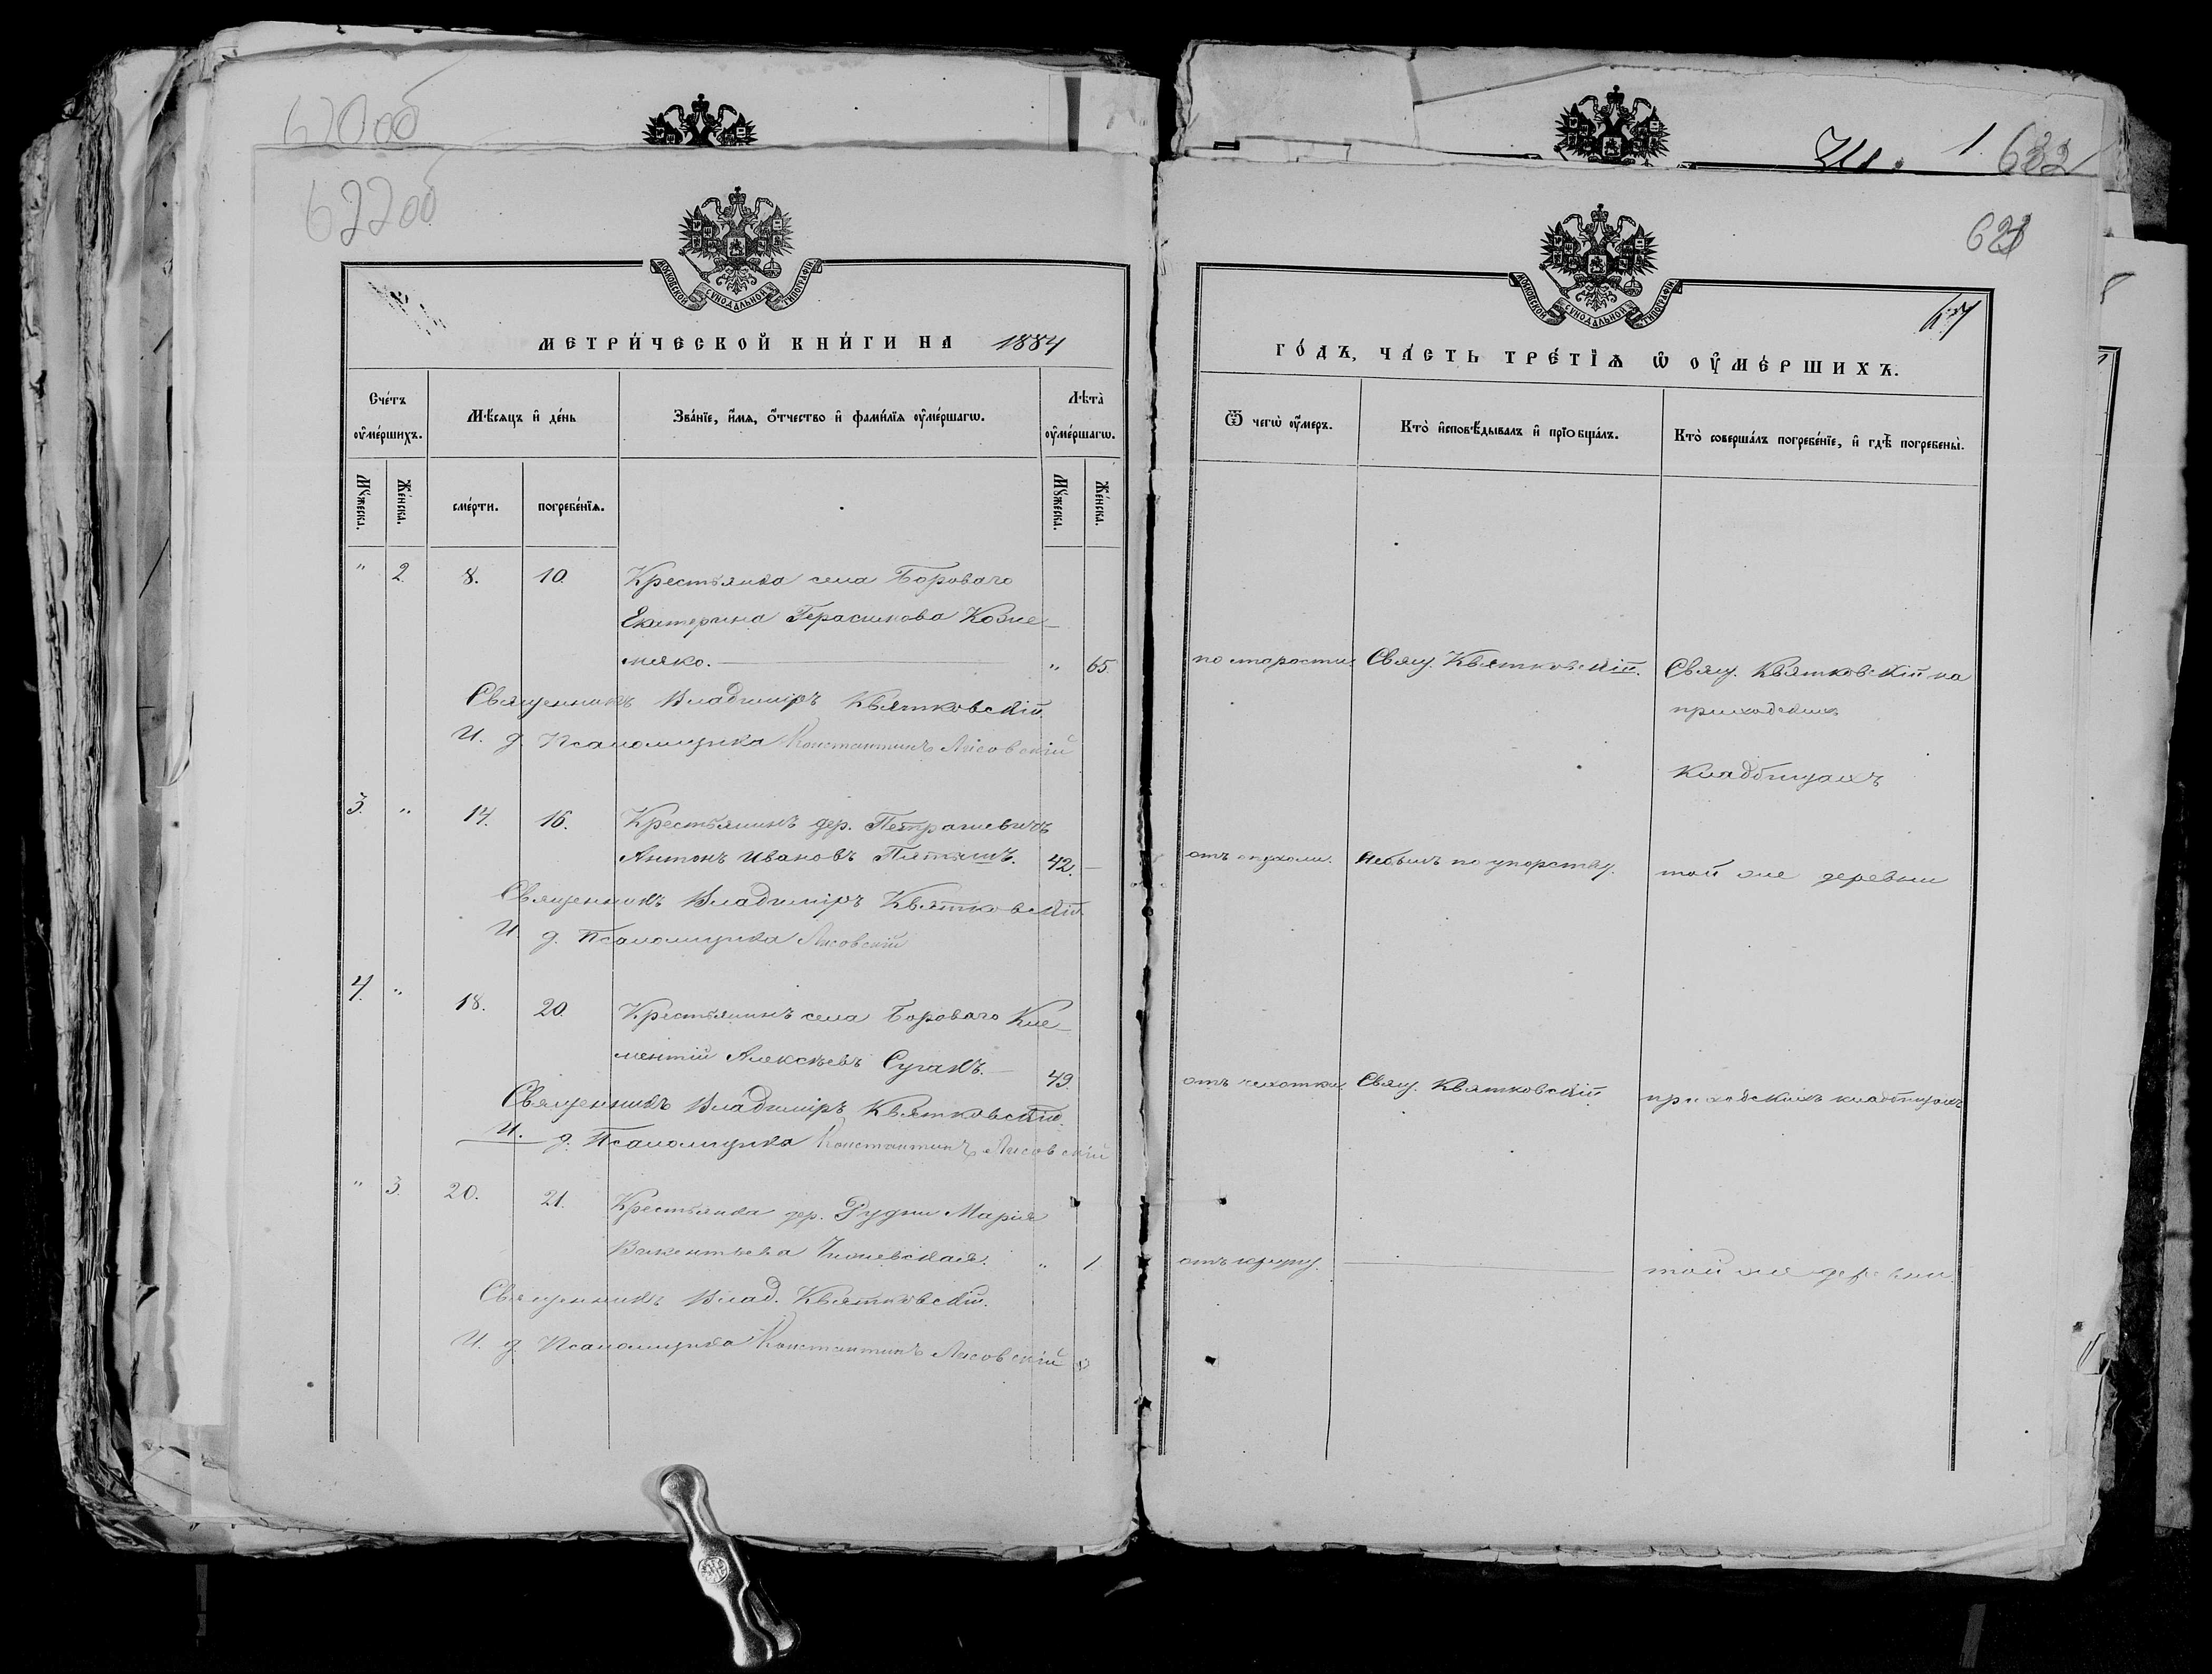 622об
МОСКОВСКОЙ СУНОДАЛЬНОЙ ТИПОГРАФІИ
МЕТРИ́ЧЕСКОЙ КНИ́ГИ НА 1884
Сче́тъ оу҆ме́ршихъ.
Мѣ́сяцъ и҆ де́нь
Зва́нїе, и҆́мя, ѻ҆́тчество и҆ фами́лїя оу҆ме́ршагѡ.
Лѣ́та оу҆ме́ршагѡ.
Мꙋ́жеска.
Же́нска.
сме́рти.
погребе́нїя.
Мꙋ́жеска.
Же́нска.
" 2. 8. 10. Крестьянка села Борового
Екатерина Герасимова
" 65.
Священникъ Владиміръ Квятковскій
И. д. Псаломщика Константинъ Лисовскій
3. " 14. 16. Крестьянинъ дер. Петрашевичъ
Антонъ Ивановъ 42. —
Священникъ Владиміръ Квятковскій
И д. Псаломщика Лисовскій
4. " 18. 20. Крестьянинъ села Борового Кле-
ментій Алексѣевъ Суганъ. — 49.
Священникъ Владиміръ Квятковскій.
И. д. Псаломщика Константинъ Лисовскій
" 3. 20. 21. Крестьянка дер. Рудни Марія
Викентьева " 1
Священникъ Влад. Квятковскій.
И. д. Псаломщика Константинъ Лисовскій
632
МОСКОВСКОЙ СУНОДАЛЬНОЙ ТИПОГРАФІИ
ГО́ДЪ, ЧА́СТЬ ТРЕ́ТЇѦ Ѡ҆ ОУ҆МЕ́РШИХЪ.
Ѿ чегѡ̀ оу҆́меръ.
Кто̀ и҆сповѣ́дывалъ и҆ прїѡбща́лъ.
Кто̀ соверша́лъ погребе́нїе, и҆ гдѣ̀ погребены̀.
по старости Свящ. Квятковскій. Свящ. Квятковскій на
приходскихъ
кладбищахъ
отъ опухоли. Небылъ по упорству. той же деревни
отъ чахотки Свящ. Квятковскій приходскихъ кладбищахъ
отъ крупу. — той же деревни.